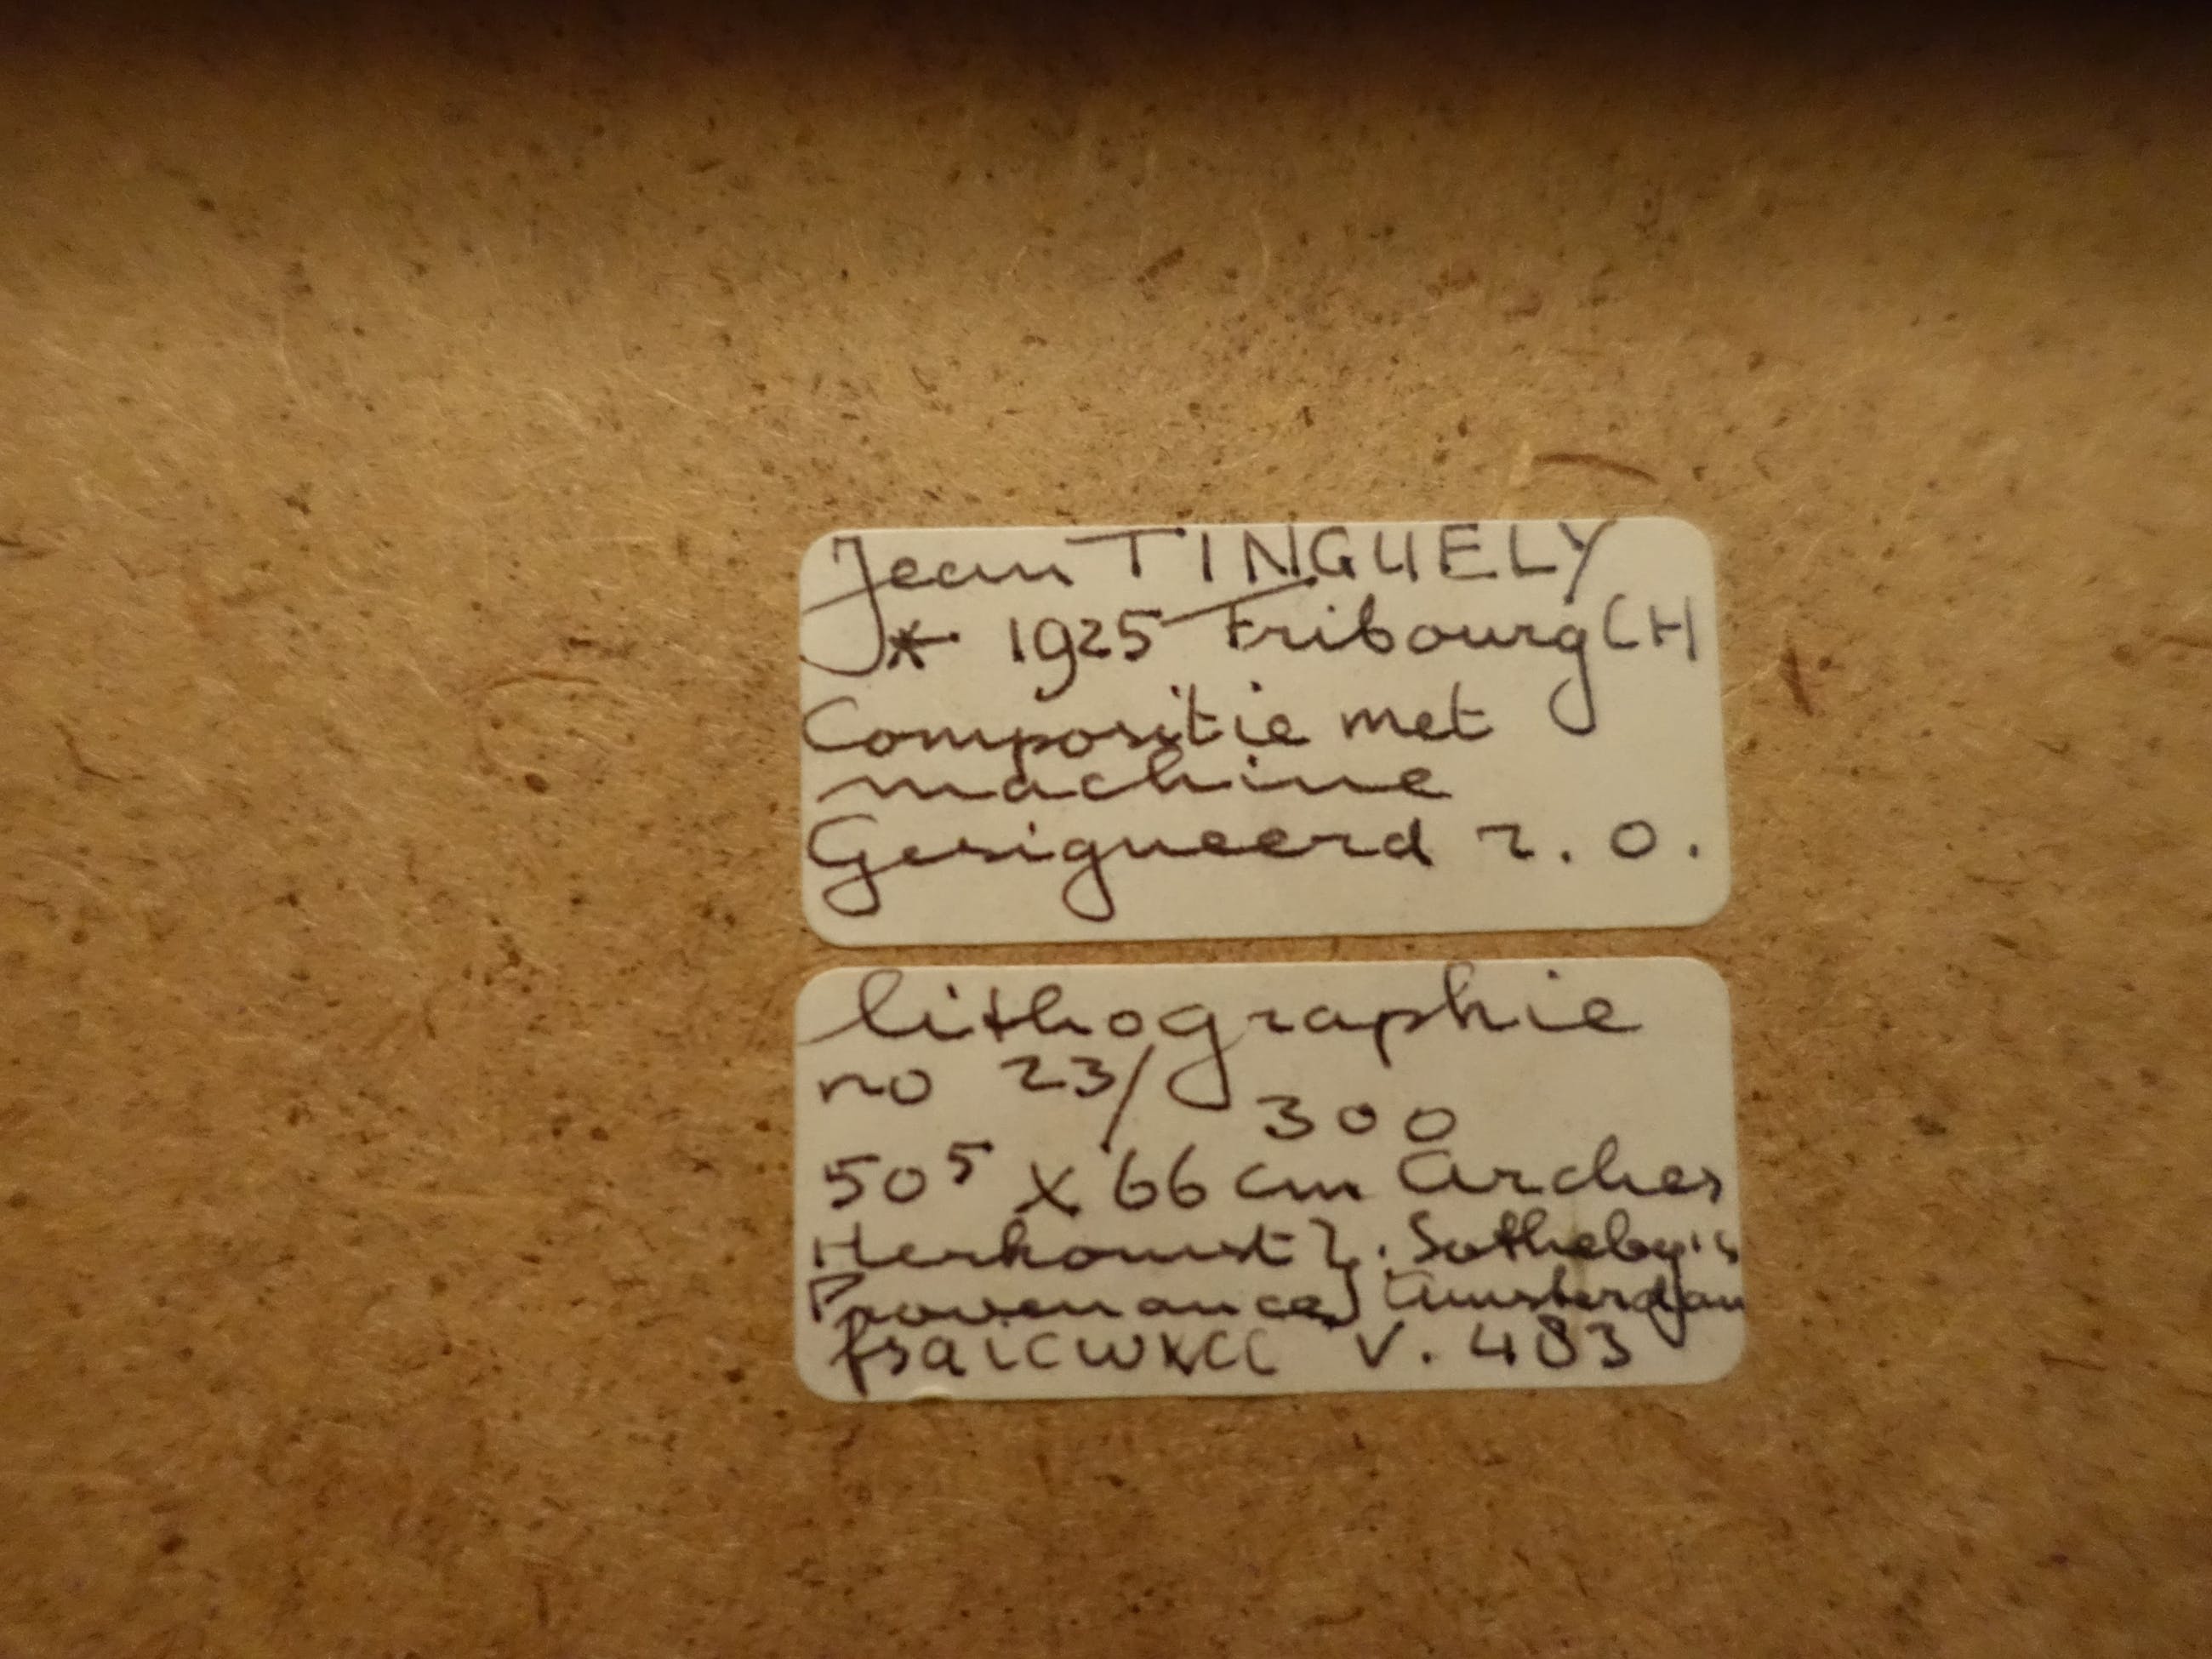 Jean TINGUELY
* 1925 Fribourg CH
Compositie met
machine
Gesigneerd r. o.
lithographie
no 23/300
50⁵ x 66 cm Arches
Herkomst } . Sotheby's
Provenance } Amsterdam
V. 483